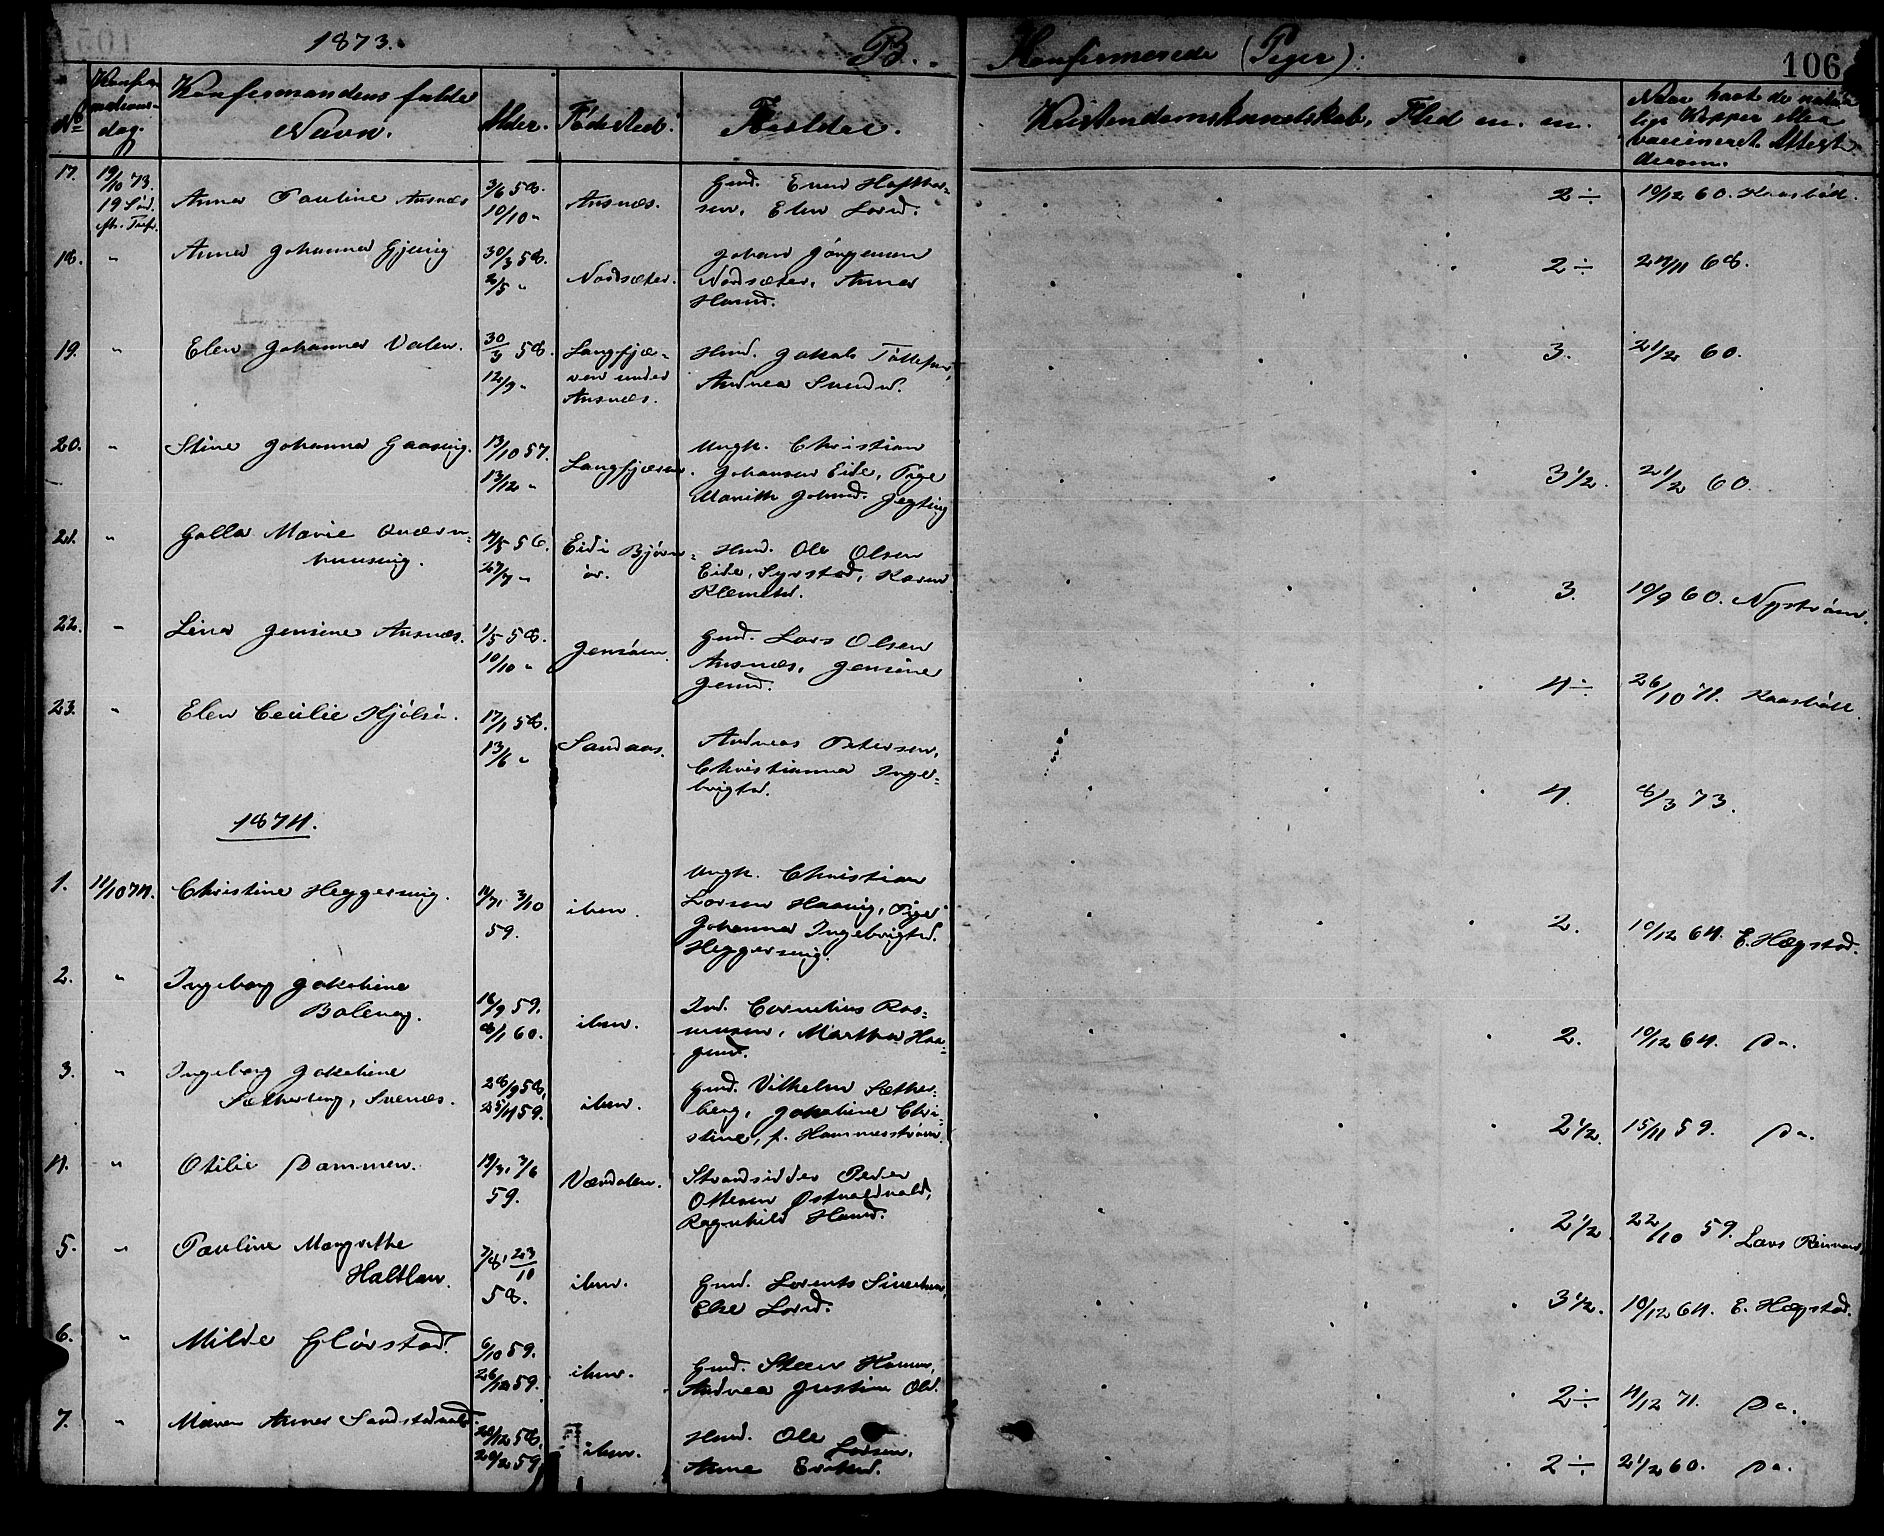 1873. B. Konfirmerede (Piger). 106
No
Konfir-
mations-
dag.
Konfirmandens fulde
Navn.
Alder.
Fødested.
Forældre.
Kristendomskundskab, Flid m. m.
Naar havt de natur-
lige Kopper eller
vaccineret. Attest
derom.
17. 19/10 73.
19 Sønd.
eft. Tref.
Anna Pauline Ansnæs
3/6 58.
10/10 "
Ansnæs.
Gmd.
sen, Elen Larsd.
2 ÷
10/12 60. Kaasbøll.
18. " Anna Johanna Gjæsing
30/3 58.
2/5 "
Nordsæter.
Johan Jørgensen
Nordsæter, Anna
Hansd.
2 ÷
68.
19. " Elen Johanna Valen.
30/3 58.
12/9 "
Langfjæ-
ren under
Ansnæs.
Hmd. Jakob
Andrea
3.
21/2 60.
20. " Stine Johanna Gaasing.
13/10 57.
13/12 "
Langfjæren.
Ungk. Christian
Johansen Eide, Pige
Marith Johnsd. Jegting
3 1/2.
21/2 60.
21. " Golla Marie Qværn-
huusing.
4/5 56.
27/7 "
Eid i Bjørn-
ør.
Hmd. Ole Olsen
Eide, Syrstad, Karen
Klemetsd.
3.
10/9 60. Nystrøm.
22. " Lina Jensine Ansnæs.
1/5 58.
10/10 "
Jensøen.
Gmd. Lars Olsen
Ansnæs, Jensine
Jensd.
4 ÷
26/10 71. Kaasbøll.
23. " Elen Cecilie Kjølsø.
17/1 58.
13/6 "
Sandaas.
Andreas Petersen,
Christianna Inge-
brigtsd.
4.
8/3 73.
1874.
1. 11/10 74. Christine Heggersing.
3/10
59.
iben.
Ungk. Christian
Larsen Haasig, Pige
Johanna Ingebrigtsd.
Heggersing.
2.
10/12 64. E. Hegstad.
2. " Ingeborg Jakobine
Bolevag.
18/9 59.
8/1 60.
iben.
Ind. Cornelius Ras-
mussen, Martha Haa-
gensd.
2.
10/12 64. Do.
3. " Ingeborg Jakobine
Sætherberg, Svenæs.
28/9 58,
25/4 59.
iben.
Gmd. Vilhelm Sæther-
berg, Jakobine Chri-
stine, f. Hammerstrøm.
2 1/2.
15/11 59. Do.
4. " Otilie Dammen.
19/3, 7/6
59.
Værdalen.
Strandsidder Peder
Ottesen
Ragnhild Hansd.
2 1/2
22/10 59. Lars
5. " Pauline Margrethe
Haltlan.
7/8, 23/10
58.
iben.
Gmd. Lorents
Else Larsd.
3 1/2.
10/12 64. E. Hegstad.
6. " Milde Glørstad.
6/10 59.
26/12 59.
iben.
Gmd. Steen Hansen,
Andrea Justine Olsd.
2 ÷
4/12 71. Do.
7. " Maren Anna Sandstadvald.
58,
59.
iben.
Hmd. Ole Larsen,
Anne
2 ÷
21/2 60. Do.